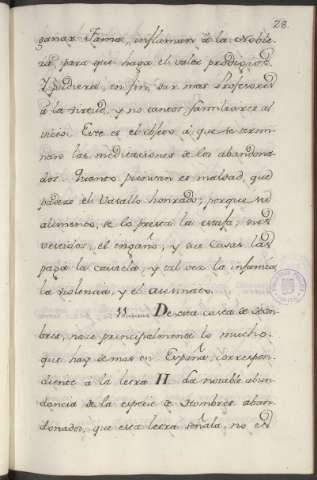 28.
ganar Fama, inflaman à la Noble-
za para que haga el valor prodigios.
Y pudiera, en fin, ser mas Profesores
à la virtud, y no tantos familiares al
vicio. Este es el objeto à que se termi-
nan las meditaciones de los abandona-
dos. Quanto procuran es maldad, que
padece el Vasallo honrado; porque su
alimento, se lo presta la estafa; sus
vestidos, el engaño; y sus casas las
paga la cautela, y tal vez la infamia,
la violencia, y el asesinato.
11. De esta casta de Hom-
bres, nace principalmente lo mucho
que hay de mas en España, correspon-
diente à la letra H. La notable abun-
dancia de la especie de Hombres aban-
donados, que esta letra señala, no es